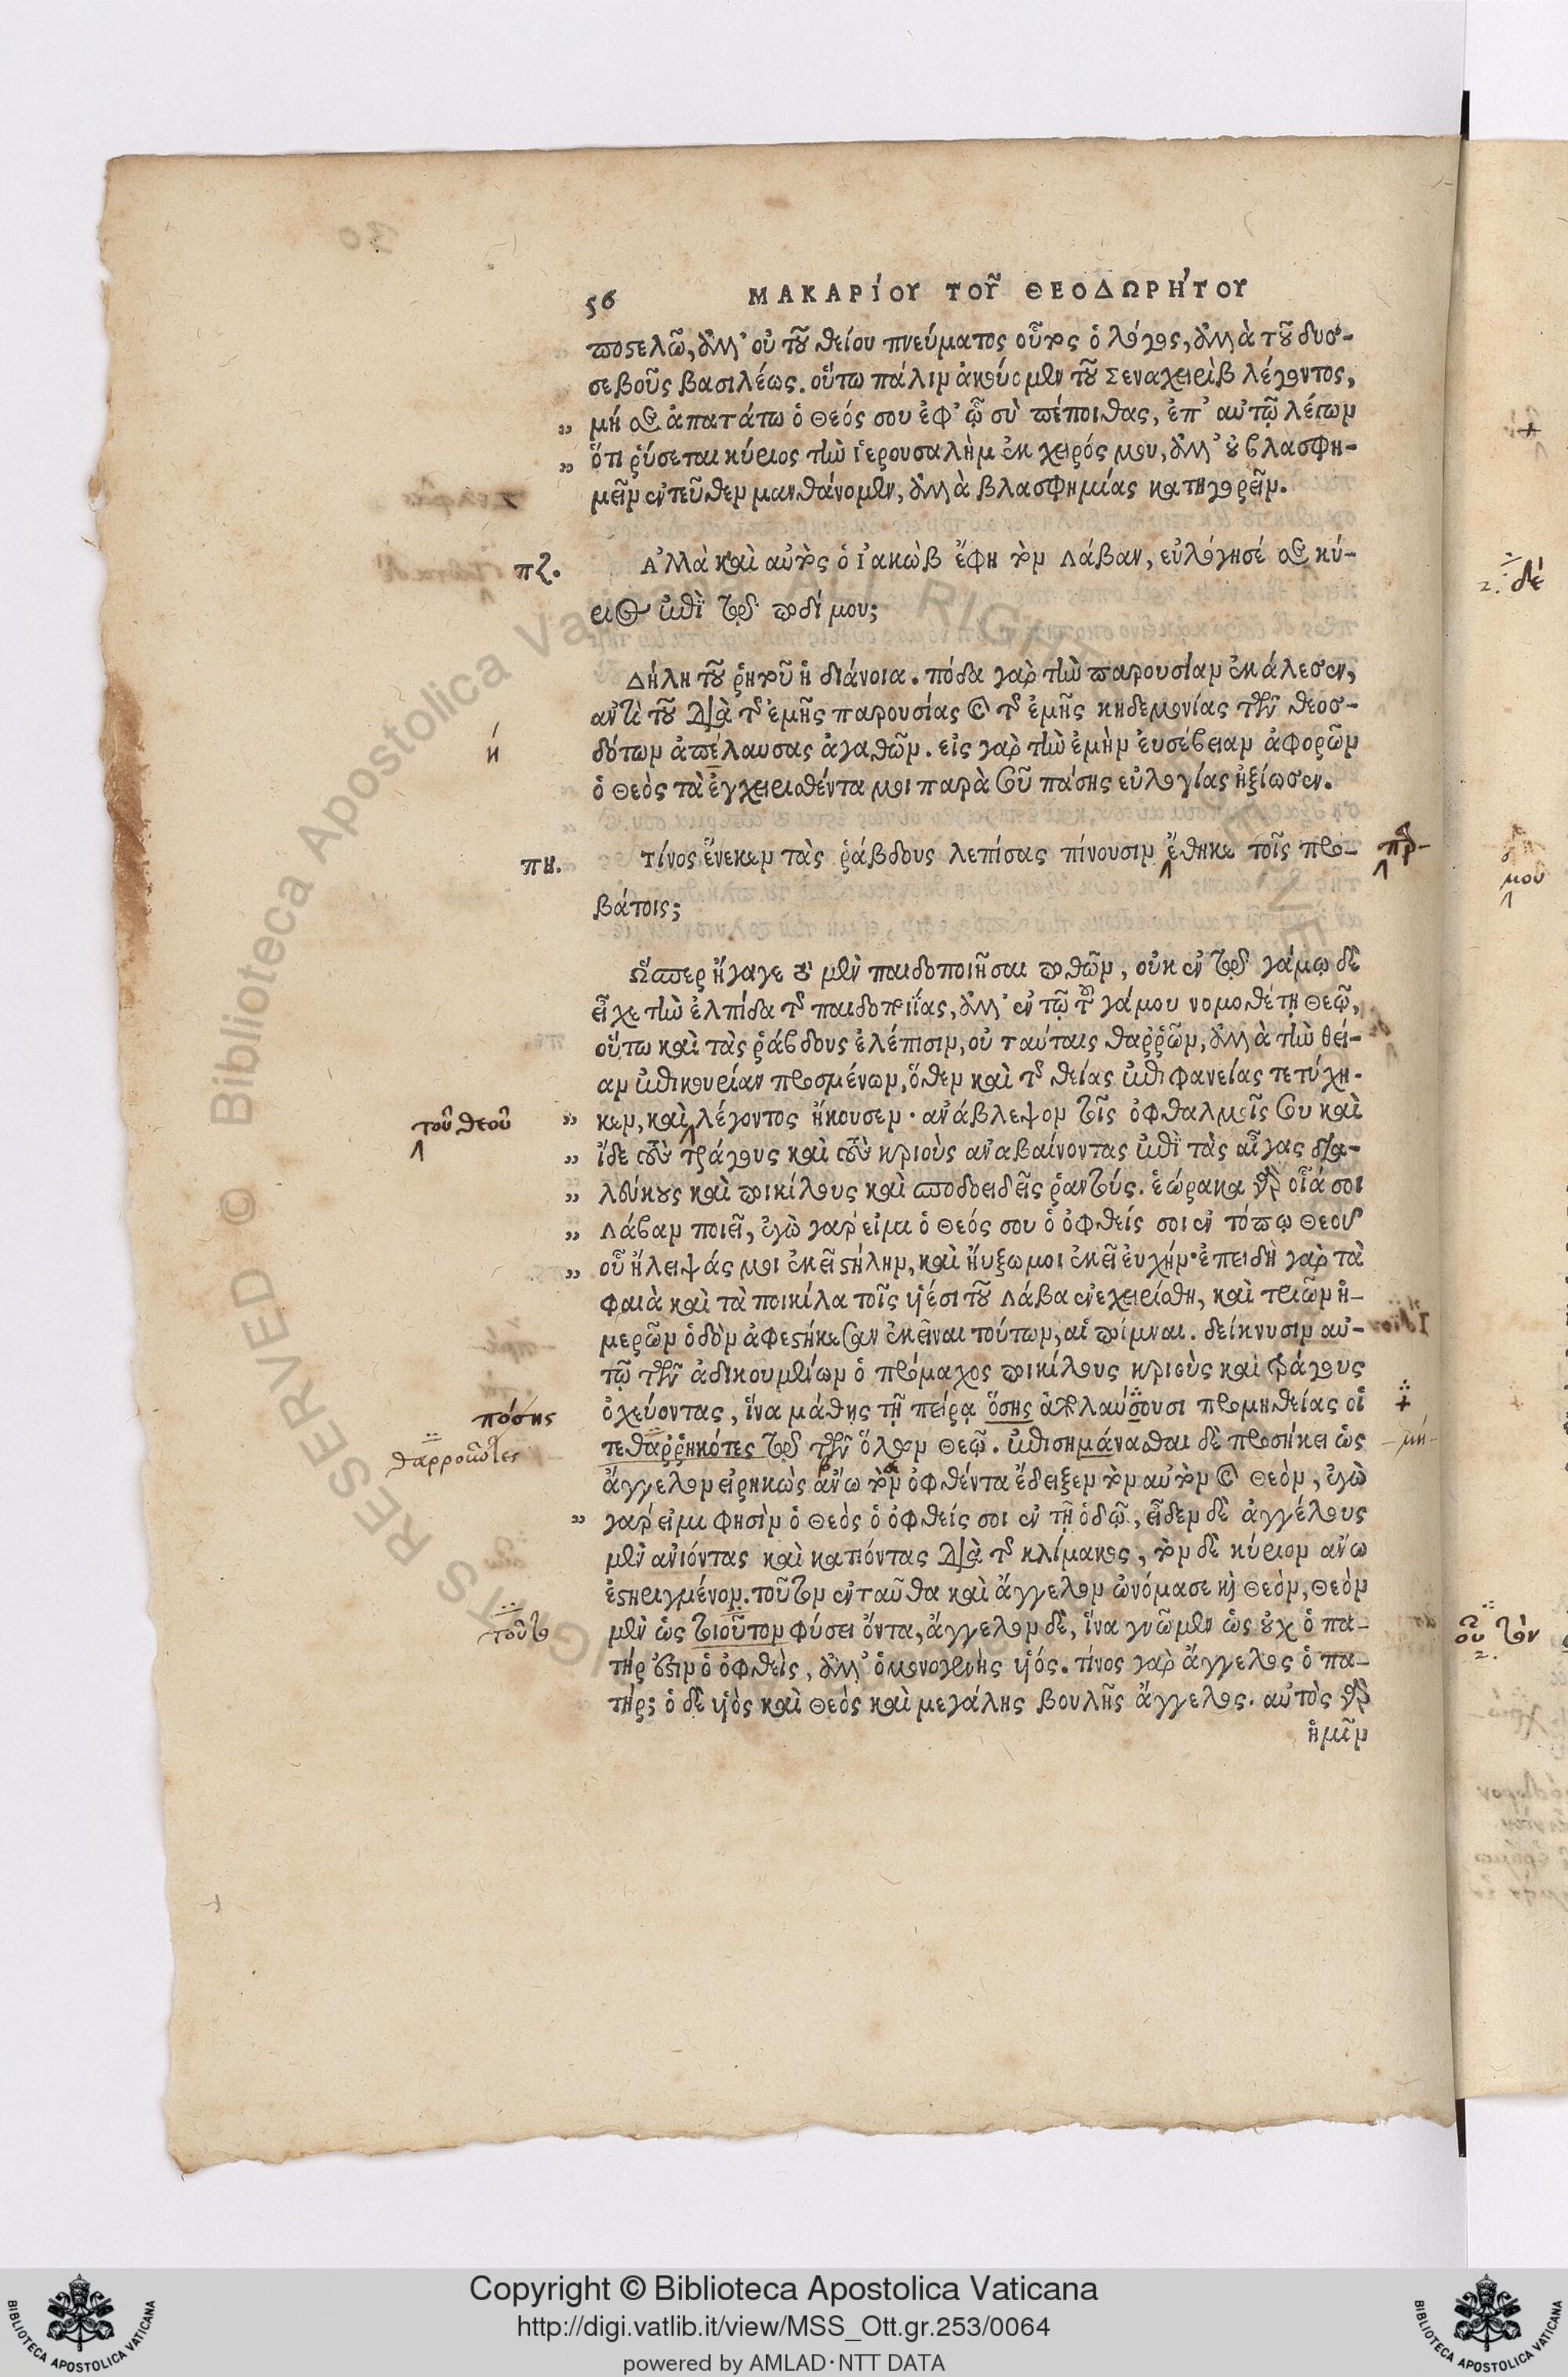 56 ΜΑΚΑΡίΟΥ ΤΟΥ͂ ΘΕΟΔΩΡΉΤΟΥ
ποστελῶ, ἀλλ' οὐ τοῦ θείου πνεύματος οὗτος ὁ λόγος, ἀλλὰ τοῦ δυσ-
σεβοῦς βασιλέως. οὕτω πάλιν ἀκούομεν τοῦ Σεναχειρὶβ λέγοντος,
„ μή σε ἀπατάτω ὁ Θεός σου ἐφ' ᾧ σὺ πέποιθας, ἐπ' αὐτῷ λέγων
„ ὅτι ῥύσεται κύριος τὴν ἱερουσαλὴμ ἐκ χειρός μου, ἀλλ' οὐ βλασφη-
μεῖν ἐντεῦθεν μανθάνομεν, ἀλλὰ βλασφημίας κατηγορεῖν.
πζ. Αλλὰ καὶ αὐτὸς ὁ ἰακὼβ ἔφη τὸν Λάβαν, εὐλόγησέ σε κύ-
ριος ἐπὶ τῷ ποδί μου;
Δήλη τοῦ ῥητοῦ ἡ διάνοια. πόδα γὰρ τὴν παρουσίαν ἐκάλεσεν,
ἀντὶ τοῦ διὰ τῆς ἐμῆς παρουσίας καὶ τῆς ἐμῆς κηδεμονίας τῶν θεοσ-
ή
δότων ἀπέλαυσας ἀγαθῶν. εἰς γὰρ τὴν ἐμὴν ἐυσέβειαν ἀφορῶν
ὁ Θεὸς τὰ ἐγχειρισθέντα μοι παρὰ σοῦ πάσης εὐλογίας ἠξίωσεν.
πη. τίνος ἕνεκεν τὰς ῥάβδους λεπίσας πίνουσιν ἔθηκε τοῖς προ-
βάτοις;
Ὥσπερ ἤγαγε τὸ μὲν παιδοποιῆσαι ποθῶν, οὐκ ἐν τῷ γάμῳ δὲ
εἶχε τὴν ἐλπίδα τῆς παιδοποιΐας, ἀλλ' ἐν τῷ τοῦ γάμου νομοθέτῃ Θεῷ,
οὕτω καὶ τὰς ῥάβδους ἐλέπισιν, οὐ ταύταις θαῤῥῶν, ἀλλὰ τὴν θεί-
αν ἐπικουρίαν προσμένων, ὅθεν καὶ τῆς θείας ἐπιφανείας τετύχη-
τοῦ θεοῦ
„ κεν, καὶ λέγοντος ἤκουσεν · ἀνάβλεψον τοῖς ὀφθαλμοῖς σου καὶ
„ ἴδε τοὺς τράγους καὶ τοὺς κριοὺς ἀναβαίνοντας ἐπὶ τὰς αἶγας δια-
„ λεύκους καὶ ποικίλους καὶ σποδοειδεῖς ῥαντούς. ἑώρακα γὰρ οἷά σοι
„ Λάβαν ποιεῖ, ἐγὼ γάρ εἰμι ὁ Θεός σου ὁ ὀφθείς σοι ἐν τόπῳ Θεοῦ
„ οὗ ἤλειψάς μοι ἐκεῖ στήλην, καὶ ἤυξω μοι ἐκεῖ ἐυχήν· ἐπειδὴ γὰρ τὰ
φαιὰ καὶ τὰ ποικίλα τοῖς υἱέσι τοῦ Λάβα ἐνεχειρίσθη, καὶ τριῶν ἡ-
μερῶν ὁδὸν ἀφεστήκεσαν ἐκεῖναι τούτων, αἱ ποίμναι. δείκνυσιν αὐ-
τῷ τῶν ἀδικουμένων ὁ πρόμαχος ποικίλους κριοὺς καὶ τράγους
πόσης
ὀχεύοντας, ἵνα μάθῃς τῇ πείρᾳ ὅσης ἀπολαύσουσι προμηθείας οἱ
θαρροῦντες
τεθαῤῥηκότες τῷ τῶν ὅλων Θεῷ. ἐπισημάνασθαι δὲ προσήκει ὡς -μή-
ἄγγελον εἰρηκὼς ἄνω τὸν ὀφθέντα ἔδειξεν τὸν αὐτὸν καὶ Θεὸν, ἐγὼ
„ γάρ εἰμι φησὶν ὁ Θεὸς ὁ ὀφθείς σοι ἐν τῇ ὁδῷ, εἶδεν δὲ ἀγγέλους
μὲν ἀνιόντας καὶ κατιόντας διὰ τῆς κλίμακος, τὸν δὲ κύριον ἄνω
ἐστηριγμένον. τοῦτον ἐνταῦθα καὶ ἄγγελον ὠνόμασε καὶ Θεὸν, Θεὸν
τοῦτο
μὲν ὡς τοιοῦτον φύσει ὄντα, ἄγγελον δὲ, ἵνα γνῶμεν ὡς οὐχ ὁ πα-
τήρ ἐστιν ὁ ὀφθεὶς, ἀλλ' ὁ μονογενὴς υἱός. τίνος γὰρ ἄγγελος ὁ πα-
τήρ; ὁ δὲ υἱὸς καὶ Θεὸς καὶ μεγάλης βουλῆς ἄγγελος. αὐτὸς γὰρ
ἡμῖν
δέ
μου
Biblioteca Apostolica Vaticana ©
ALL RIGHTS RESERVED
Copyright © Biblioteca Apostolica Vaticana
http://digi.vatlib.it/view/MSS_Ott.gr.253/0064
powered by AMLAD·NTT DATA
BIBLIOTECA APOSTOLICA VATICANA
BIBLIOTECA APOSTOLICA VATICANA